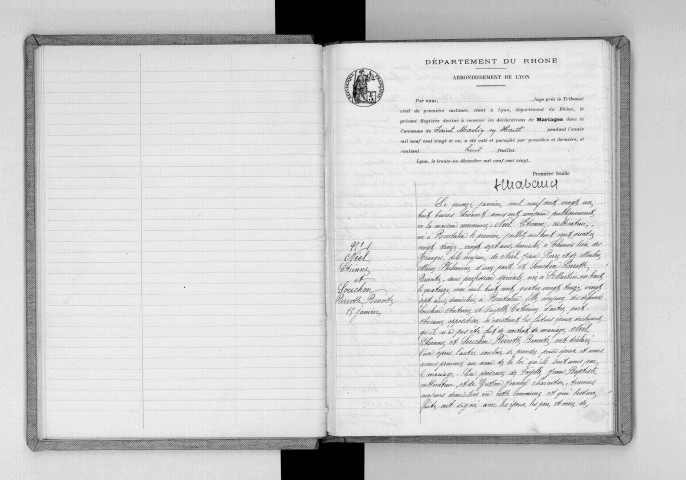 DÉPARTEMENT DU RHÔNE
ARRONDISSEMENT DE LYON
Par nous, Juge près le Tribunal
civil de première instance, séant à Lyon, département du Rhône, le
présent Registre destiné à recevoir les déclarations de Mariages dans la
Commune de Saint Martin en Haut pendant l'année
mil neuf cent vingt et un, a été coté et paraphé par première et dernière, et
contient huit feuilles.
Lyon, le trente-un décembre mil neuf cent vingt.
Première feuille
Chabaud
N° 1
Noël
Etienne
et
Souchon
Pierrette Benoite
15 janvier
Le quinze janvier mil neuf cent vingt un,
huit heures devant nous ont comparu publiquement
en la maison commune: Noël Etienne, cultivateur,
né à le premier juillet mil huit cent quatre
vingt treize, vingt sept ans, domicilié à
Granges, fils majeur de Noël Jean Pierre et de
Marie Philomène d'une part, et Souchon Pierrette
Benoite, sans profession née à St Martin en haut
le mai mil huit cent quatre vingt treize, vingt
sept ans, domiciliée à fille majeure des
Souchon Antoine et Fayolle Catherine d'autre part.
Aucune opposition n'existant, les futurs époux déclarent
qu'il n'a pas été fait de contrat de mariage, Noël
Etienne et Souchon Pierrette Benoite, ont déclaré
l'un après l'autre vouloir se prendre pour époux et nous
avons prononcé au nom de la loi qu'ils sont unis par
le mariage. En présence de Fayolle Jean Baptiste
cultivateur, et de Francis charpentier, témoins
majeurs domiciliés en cette commune et qui lecture
faite, ont signé avec les époux, les père et mère de